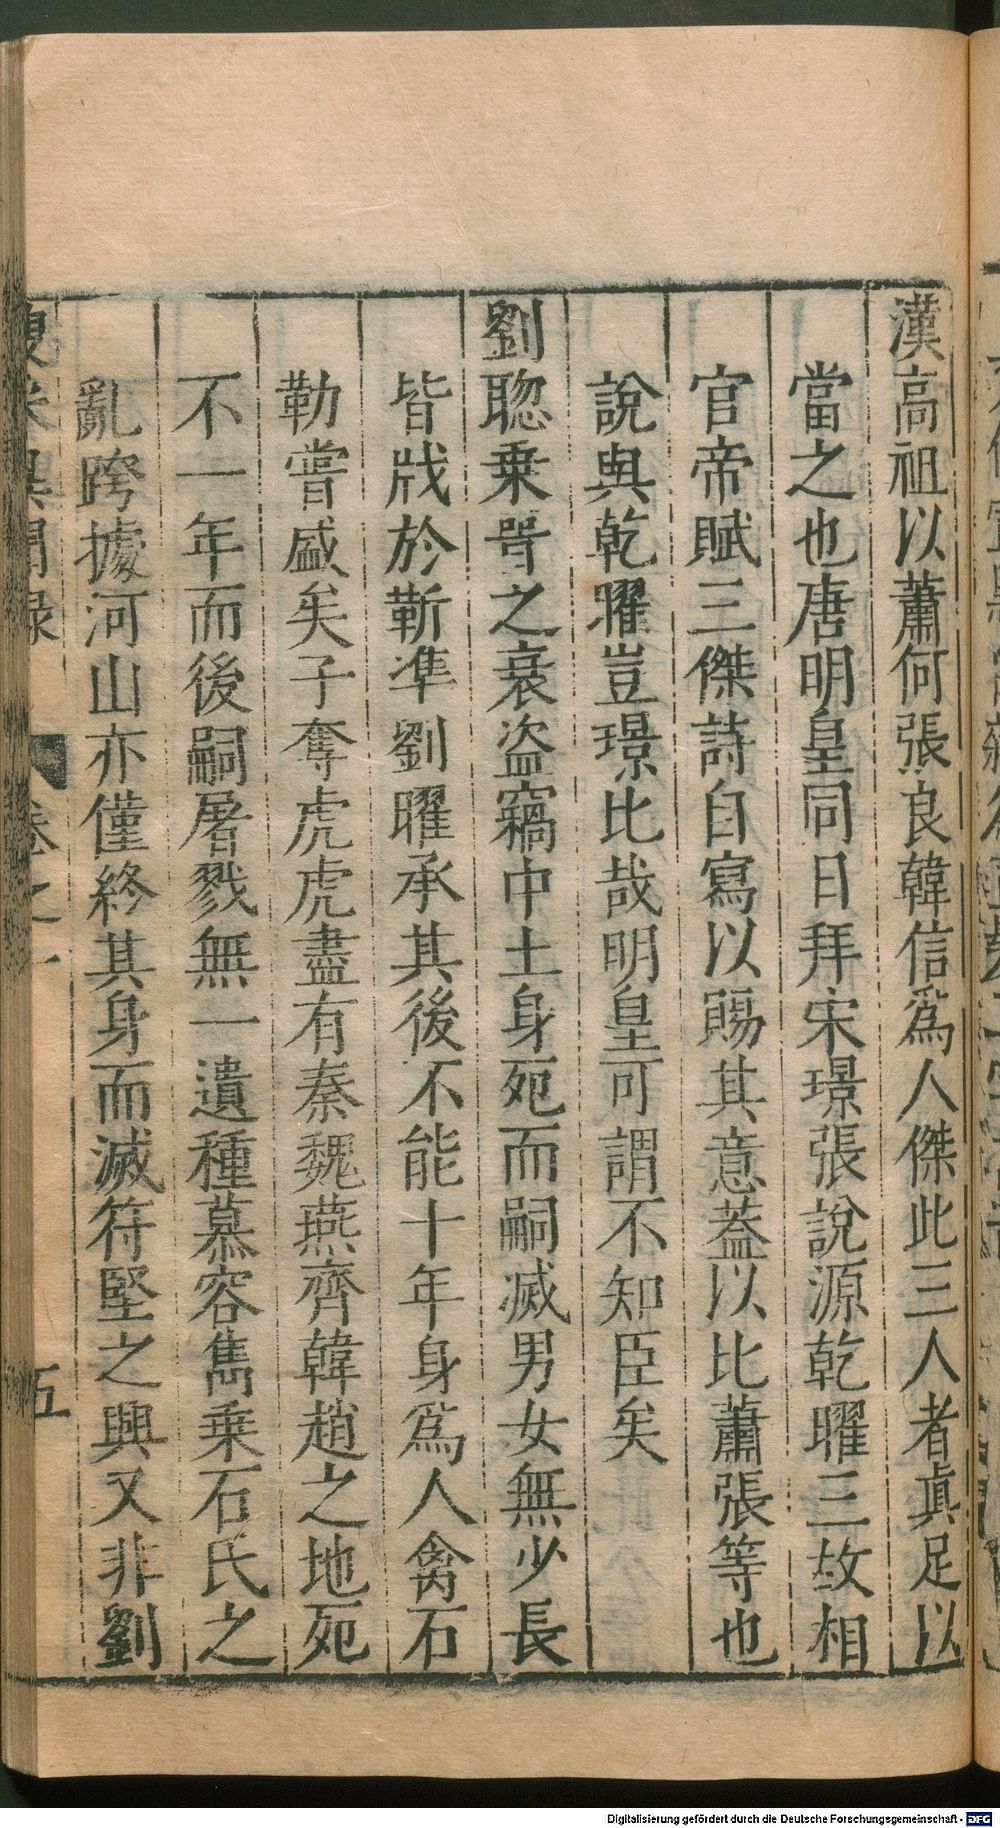 漢高祖以蕭何張良韓信爲人傑此三人者眞足以
當之也唐明皇同日拜宋璟張說源乾曜三故相
官帝賦三傑詩自寫以賜其意蓋以比蕭張等也
說與乾曜豈璟比哉明皇可謂不知臣矣
劉聰乗晉之衰盜竊中土身死而嗣滅男女無少長
皆戕於靳準劉曜承其後不能十年身爲人禽石
勒嘗盛矣子奪虎虎盡有秦魏燕齊韓趙之地死
不一年而後嗣屠戮無一遺種慕容雋乗石氏之
亂跨據河山亦僅終其身而滅符堅之興又非劉
卷之一
五
Digitalisierung gefördert durch die Deutsche Forschungsgemeinschaft - DFG